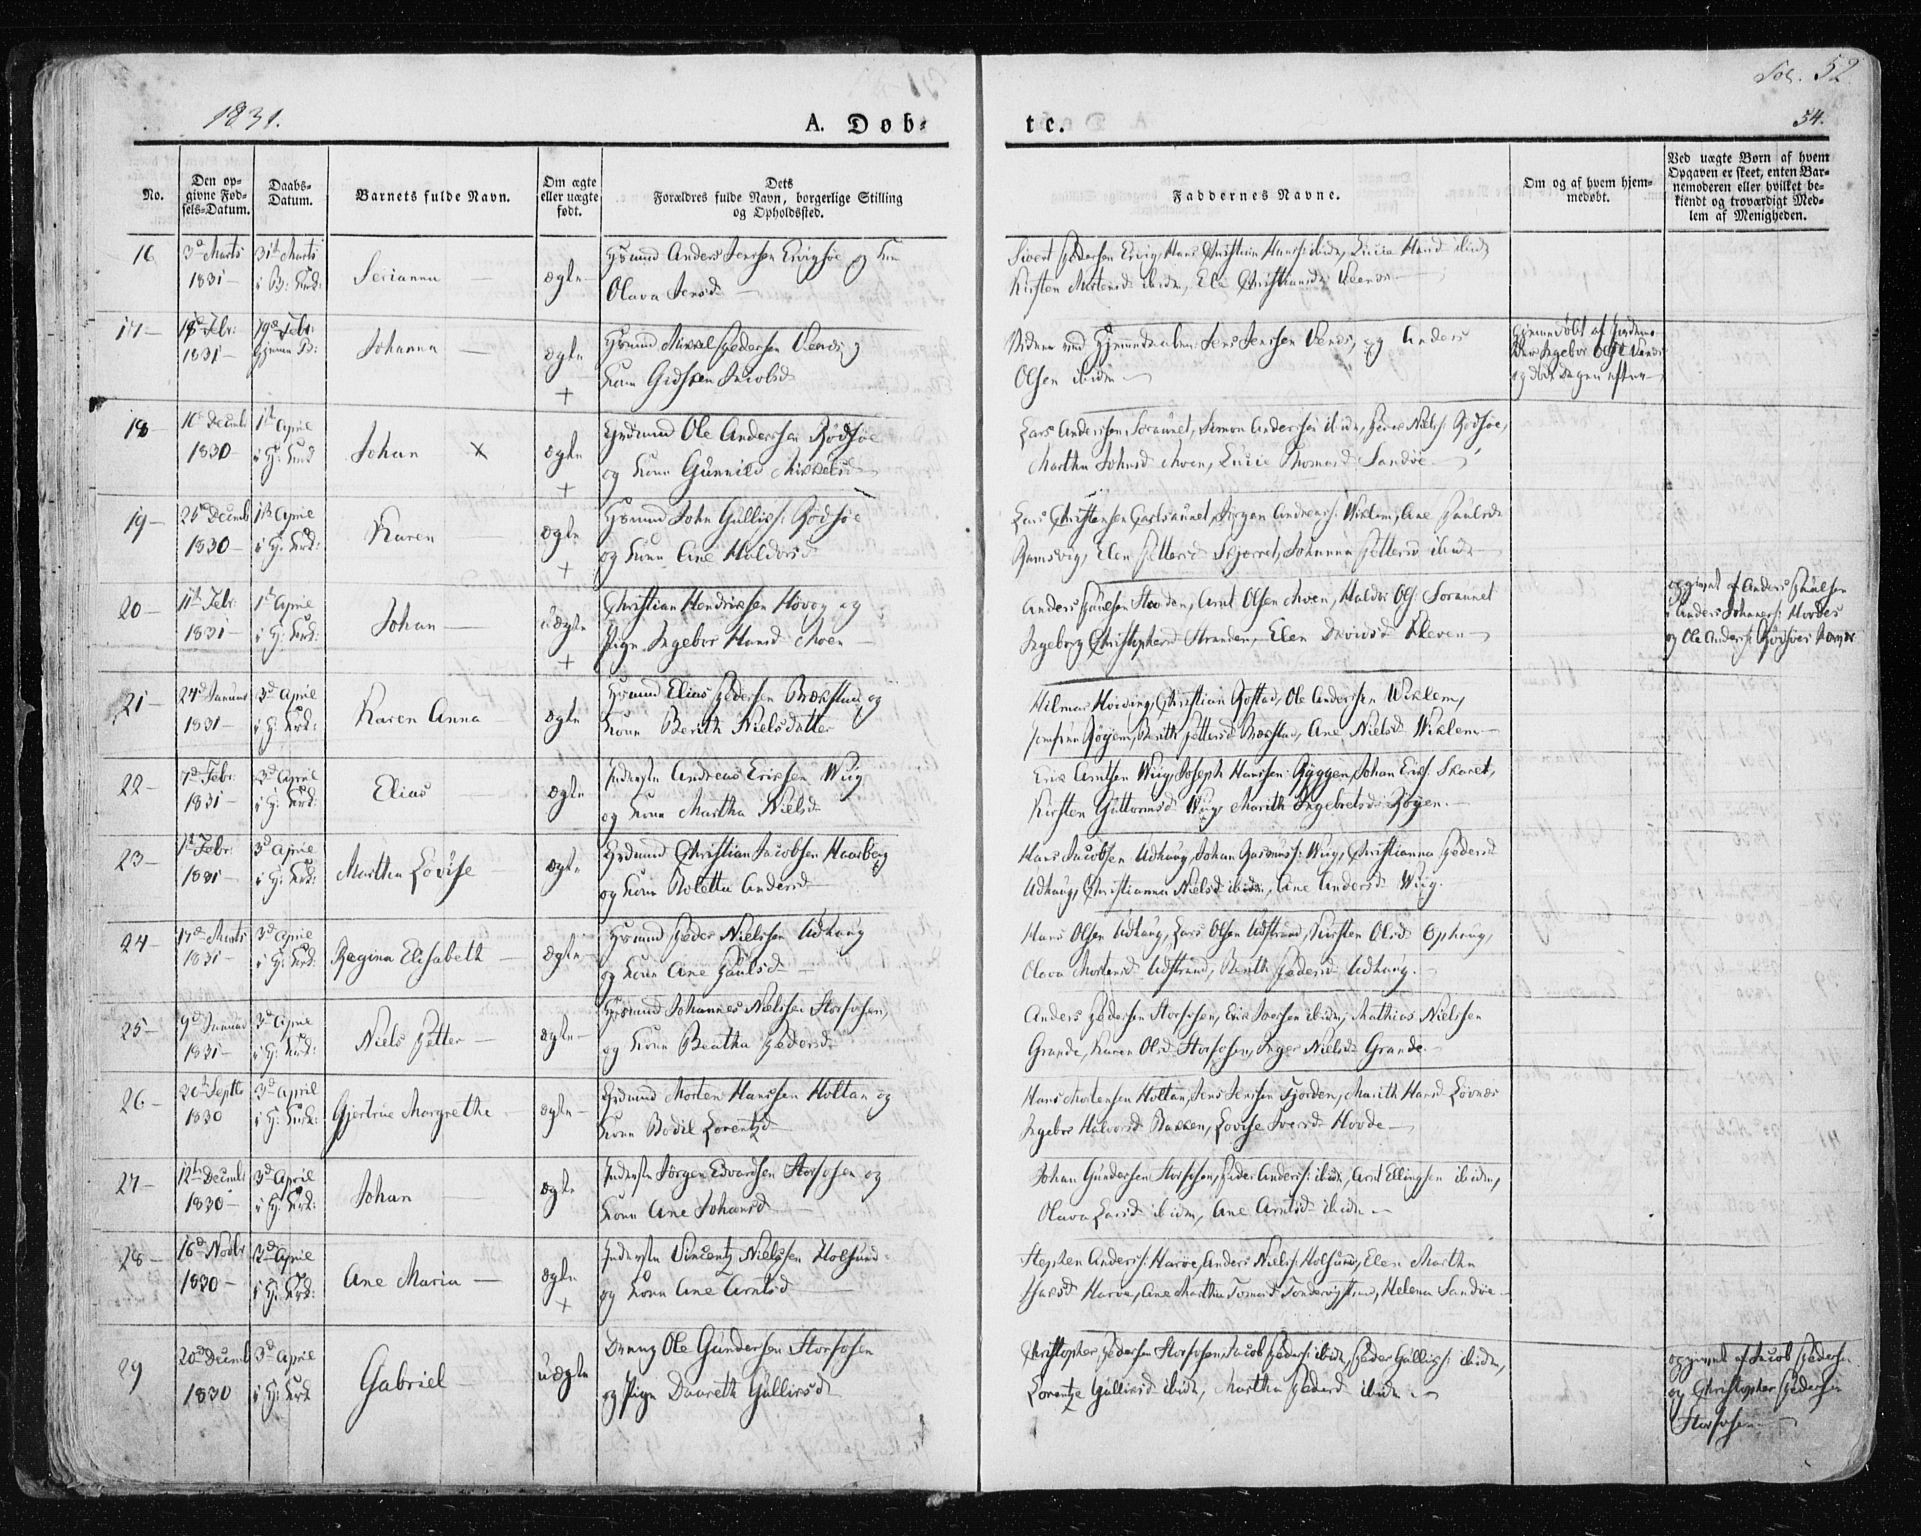 1831.
A. Døb-
te.
Fol. 52
54.
No.
Den op-
givne Fød-
sels-Datum.
Daabs-
Datum.
Barnets fulde Navn.
Om ægte
eller uægte
født.
Dets
Forældres fulde Navn, borgerlige Stilling
og Opholdsted.
Faddernes Navne.
Om og af hvem hjem-
medøbt.
Ved uægte Børn af hvem
Opgaven er skeet, enten Bar-
nemoderen eller hvilket be-
kiendt og troværdigt Med-
lem af Menigheden.
16
3d Marts
1831
31th Marts
Serianna
ægte
Huusmd Anders Jenssen og Kone
Olava Jensd
Sivert Pedersen Ervig, Hans Christian Hanss: ibidm, Lucia Hansd ibidm
Kirsten Mortensd ibidm, Elen Christiansd
17
18d Febr:
1831
19d Febr:
Hjemme D:
Johanna
ægte
+
Huusmd Mikkel Pedersen og
Kone Gidsken Jacobsd
Vidner ved Hjemmedaaben: Jens Jenssen, og Anders
Olsen ibidm
Hjemmedøbt af
Ingebor Olsd
og døde Dagen efter
18
16 Decemb
1830
1th April
i H: Kird
Johan X
ægte
+
Huusmd Ole Anderssen Rødsøe
og Kone Gunnild Mikkelsd
Lars Anderssen Soraunet, Simon Anderssen ibidm, Peder Niels: Rødsøe,
Martha Johnsd Moen, Lucie Thomasd Sandøe
19
25d Decemb
1830
1th April
i H: Kird:
Karen
ægte
+
Huusmd John Gulliks: Rødsøe
og Kone Ane Haldorsd
Lars Christensen Carlsaunet, Jørgen Andreass: Wiklem, Ane Paulsd
Ramsvig, Elen Pettersd, Johanna Pettersd ibidm
20
11th Febr.
1831
1th April
i H: Kird:
Johan
uægte
+
Christian Hendriksen Høvog og
Pige Ingebor Hansd Moen
Anders Paulsen Hovden, Arnt Olsen Moen, Haldor Ols: Soraunet
Ingeborg Christophersd Stranden, Elen Davidsd Kleven
opgivet af Anders Paulsen
Anders Johannes: Hovdes
og Ole Anderss: Rødsøes
21
24d Januar
1831
3d April
i H: Kird:
Karen Anna
ægte
Huusmd Elias Pedersen Brækstad og
Kone Berith Nielsdatter
Hilmar Høiding, Christian Rostad, Ole Anderssen Wiklem,
Røyem, Berith Pettersd Brækstad, Ane Nielsd Wiklem
22
7d Febr:
1831
3d April
i H: Kird:
Elias
ægte
Inderste Andreas Erichsen Wiig
og Kone Martha Nielsd
Erik Arntsen Wiig, Joseph Hanssen Ryggen, Johan Eriks: Skaret,
Kirsten Guttormsd Wiig, Marith Ingebretsd Røyen.
23
1th Febr:
1831
3d April
i H: Kird:
Martha Lovise
ægte
Huusmd Christian Jacobsen Haarberg
og Kone Roletta Andersd
Hans Jacobsen Udhaug, Johan Rasmuss: Wiig, Christianna Pedersd
Udhaug, Christianna Nielsd ibidm, Ane Andersd Wiig.
24
17d Marts
1831
3d April
i H: Kird:
Regina Elisabeth
ægte
Huusmd Peder Nielssen Udhaug
og Kone Ane Paulsd
Hans Olsen Udhaug, Lars Olsen Udstrand, Kirsten Olsd Ophaug,
Olava Mortensd Udstrand, Berith Pedersd Udhaug.
25
9d Januar
1831
3d April
i H: Kird:
Niels Petter
ægte
Huusmd Johannes Nielssen Storfosen,
og Kone Beatha Pedersd
Anders Pedersen Storfosen, Erik Iversen ibidm, Mathias Nielssen
Grande, Karen Olsd Storfosen, Inger Nielsd Grande.
26
20th Septbr
1830
3d April
i H: Kird:
Gjertrue Margrethe
ægte
Huusmd Morten Hanssen Holtan og
Kone Bodil Lorentzd
Hans Mortensen Holtan, Jens Jenssen Fjorden, Marith Hansd Løvnæs
Ingebor Halvorsd Bakken, Lovise Iversd Hovde
27
12th Decemb
1830
3d April
i H: Kird:
Johan
ægte
Inderste Jørgen Edvardsen Storfosen og
Kone Ane Johansd
Johan Gundersen Storfosen, Peder Anderss: ibidm, Arnt Ellingsen ibidm,
Olava Larsd ibidm, Ane Arntsd ibidm
28
16d Novbr
1830
3d April
i H: Kird:
Ane Maria
ægte
+
Inderste Vincentz Nielssen Holsund
og Kone Ane Arntsd
Stephen Anderss: Harøe, Anders Niels: Holsund, Elen Martha
Harøe, Ane Martha Tomasd, Helena Sandøe
29
20d Decemb
1830
3d April
i H: Kird
Gabriel
uægte
Dreng Ole Gundersen Storfosen
og Pige Daareth Gulliksd
Christopher Pedersen Storfosen, Jacob Peders: ibidm, Peder Gulliks: ibidm,
Lorentze Gulliksd ibidm, Martha Pedersd ibidm
opgivet af Jacob Pedersen
og Christopher Pedersen
Storfosen